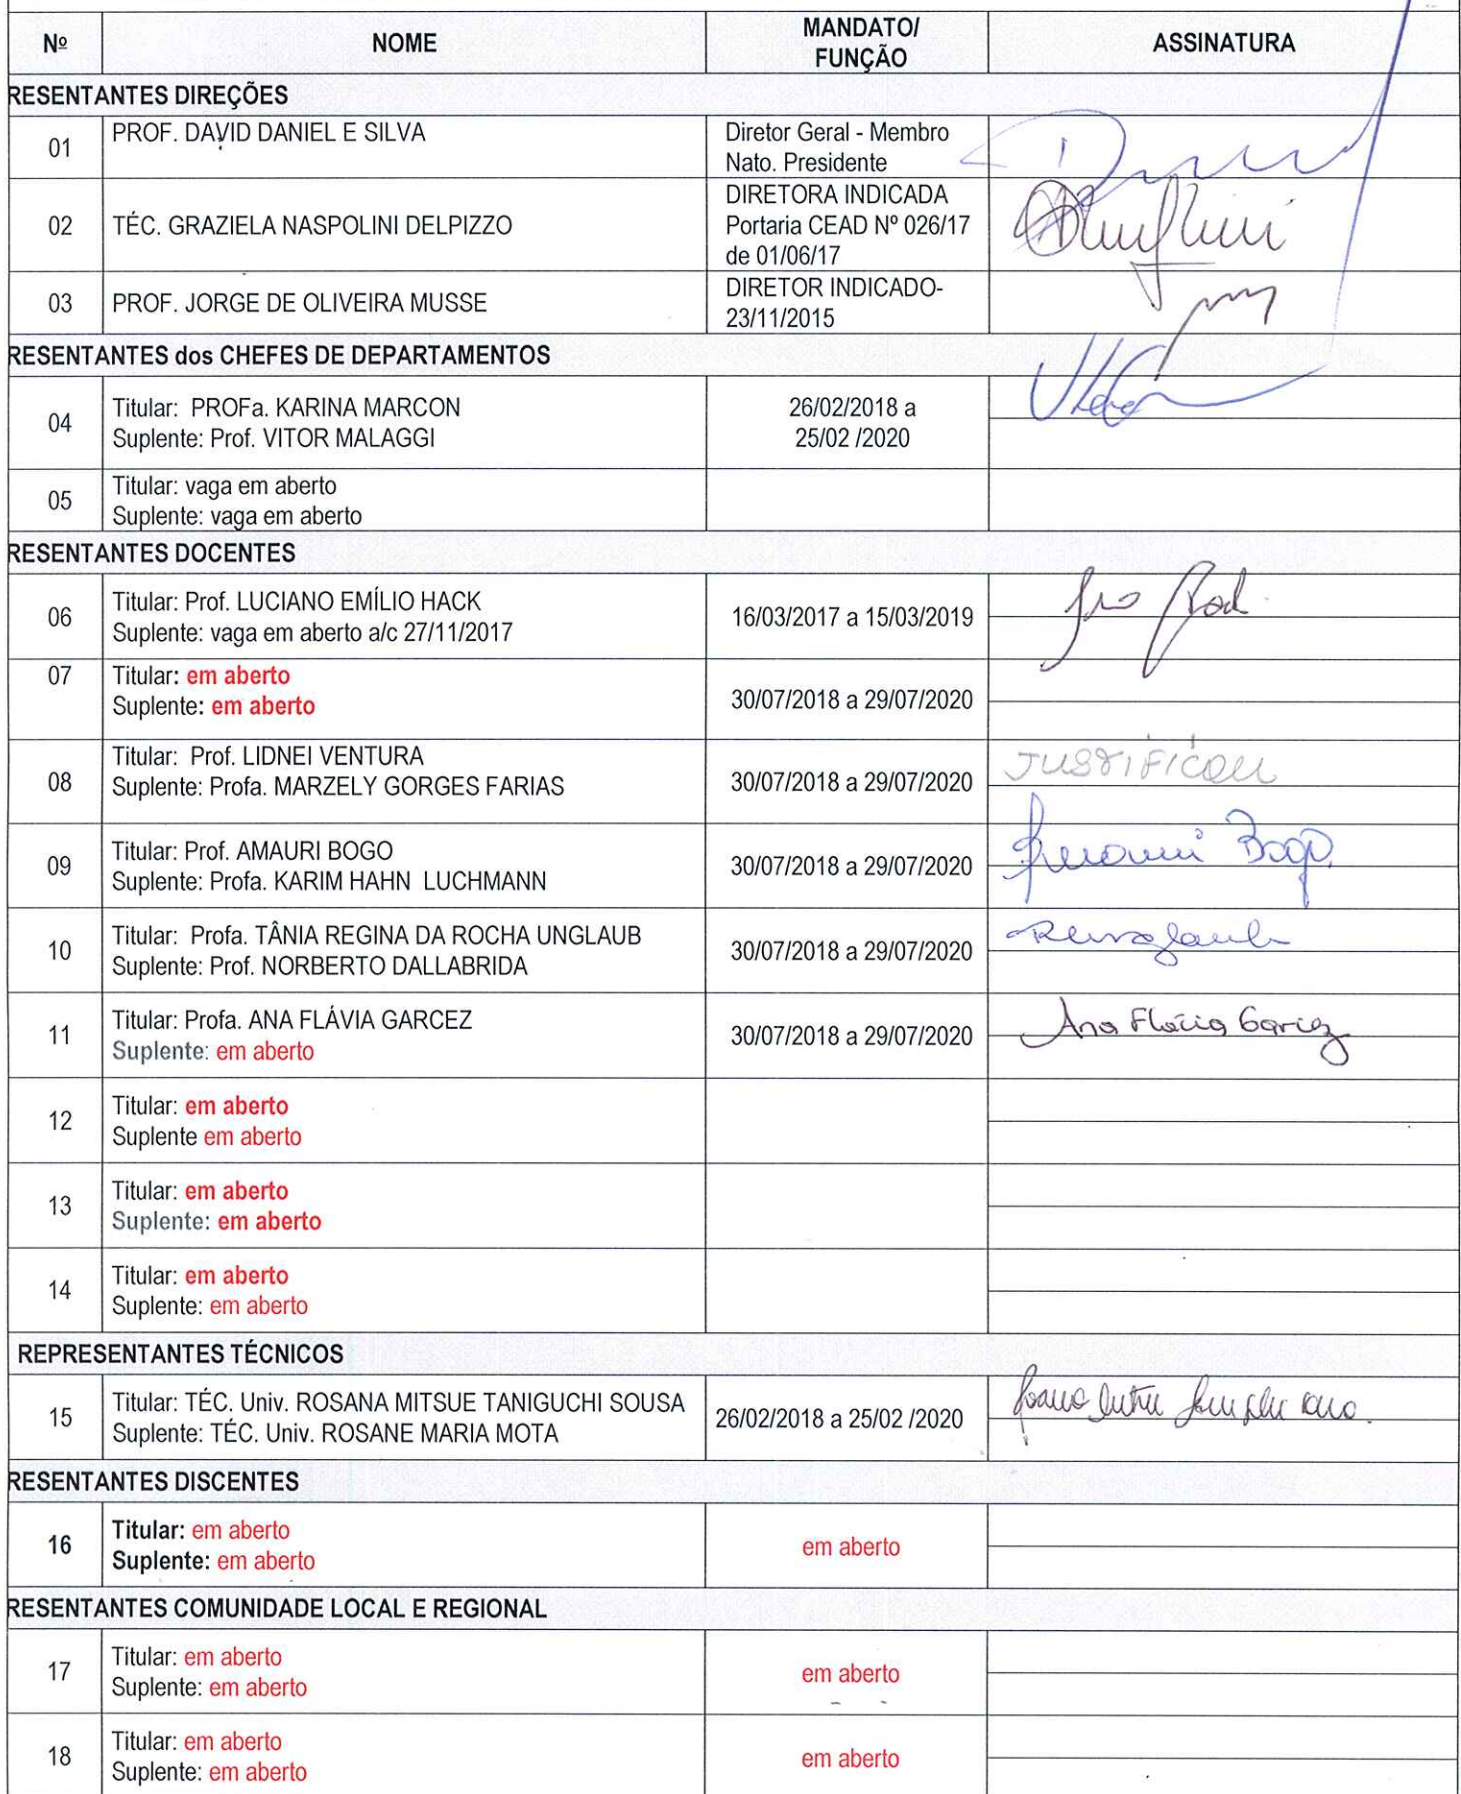 Nº NOME MANDATO/ FUNÇÃO ASSINATURA
RESENTANTES DIREÇÕES
01 PROF. DAVID DANIEL E SILVA Diretor Geral - Membro
Nato. Presidente
DIRETORA INDICADA
02 TÉC. GRAZIELA NASPOLINI DELPIZZO Portaria CEAD Nº 026/17
de 01/06/17
03 PROF. JORGE DE OLIVEIRA MUSSE DIRETOR INDICADO-
23/11/2015
RESENTANTES dos CHEFES DE DEPARTAMENTOS
04 Titular: PROFa. KARINA MARCON 26/02/2018 a
Suplente: Prof. VITOR MALAGGI 25/02 /2020
05 Titular: vaga em aberto
Suplente: vaga em aberto
RESENTANTES DOCENTES
06 Titular: Prof. LUCIANO EMÍLIO HACK 16/03/2017 a 15/03/2019
Suplente: vaga em aberto a/c 27/11/2017
07 Titular: em aberto
Suplente: em aberto 30/07/2018 a 29/07/2020
08 Titular: Prof. LIDNEI VENTURA JUSTIFICOU
Suplente: Profa. MARZELY GORGES FARIAS 30/07/2018 a 29/07/2020
09 Titular: Prof. AMAURI BOGO Bogo
Suplente: Profa. KARIM HAHN LUCHMANN 30/07/2018 a 29/07/2020
10 Titular: Profa. TÂNIA REGINA DA ROCHA UNGLAUB
Suplente: Prof. NORBERTO DALLABRIDA 30/07/2018 a 29/07/2020
11 Titular: Profa. ANA FLÁVIA GARCEZ Ana Flávia Garcez
Suplente: em aberto 30/07/2018 a 29/07/2020
12 Titular: em aberto
Suplente em aberto
13 Titular: em aberto
Suplente: em aberto
14 Titular: em aberto
Suplente: em aberto
REPRESENTANTES TÉCNICOS
15 Titular: TÉC. Univ. ROSANA MITSUE TANIGUCHI SOUSA 26/02/2018 a 25/02 /2020
Suplente: TÉC. Univ. ROSANE MARIA MOTA
RESENTANTES DISCENTES
16 Titular: em aberto em aberto
Suplente: em aberto
RESENTANTES COMUNIDADE LOCAL E REGIONAL
17 Titular: em aberto em aberto
Suplente: em aberto
18 Titular: em aberto em aberto
Suplente: em aberto